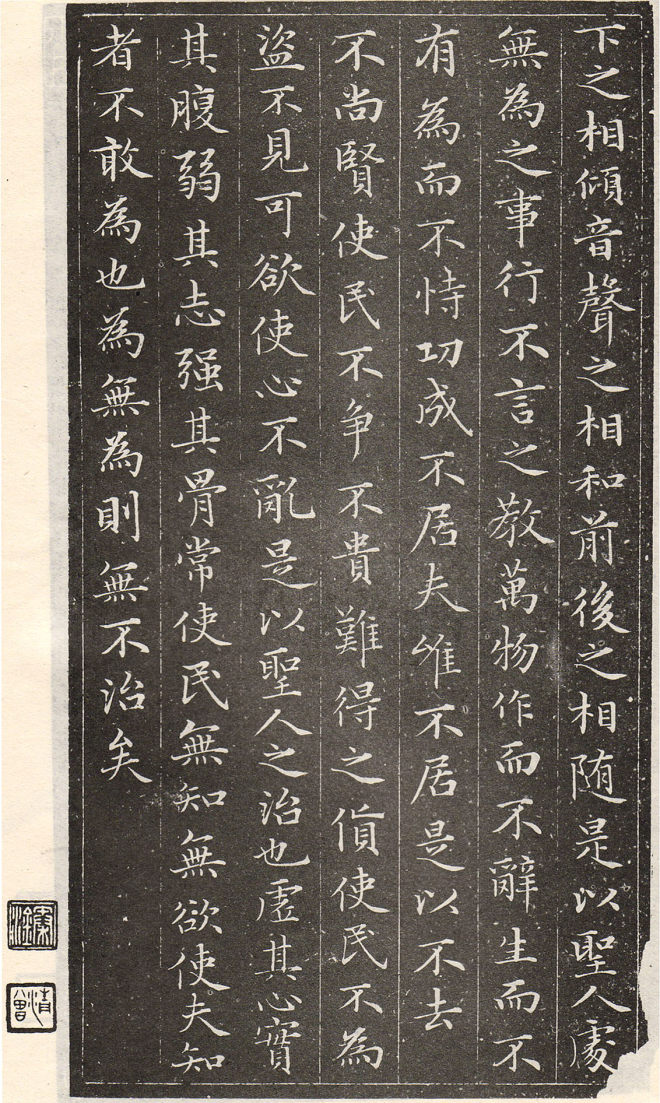 下之相傾音聲之相和前後之相随是以聖人處
無為之事行不言之教萬物作而不辭生而不
有為而不恃功成不居夫惟不居是以不去
不尚賢使民不爭不貴難得之貨使民不為
盜不見可欲使心不亂是以聖人之治也虛其心實
其腹弱其志强其骨常使民無知無欲使夫知
者不敢為也為無為則無不治矣